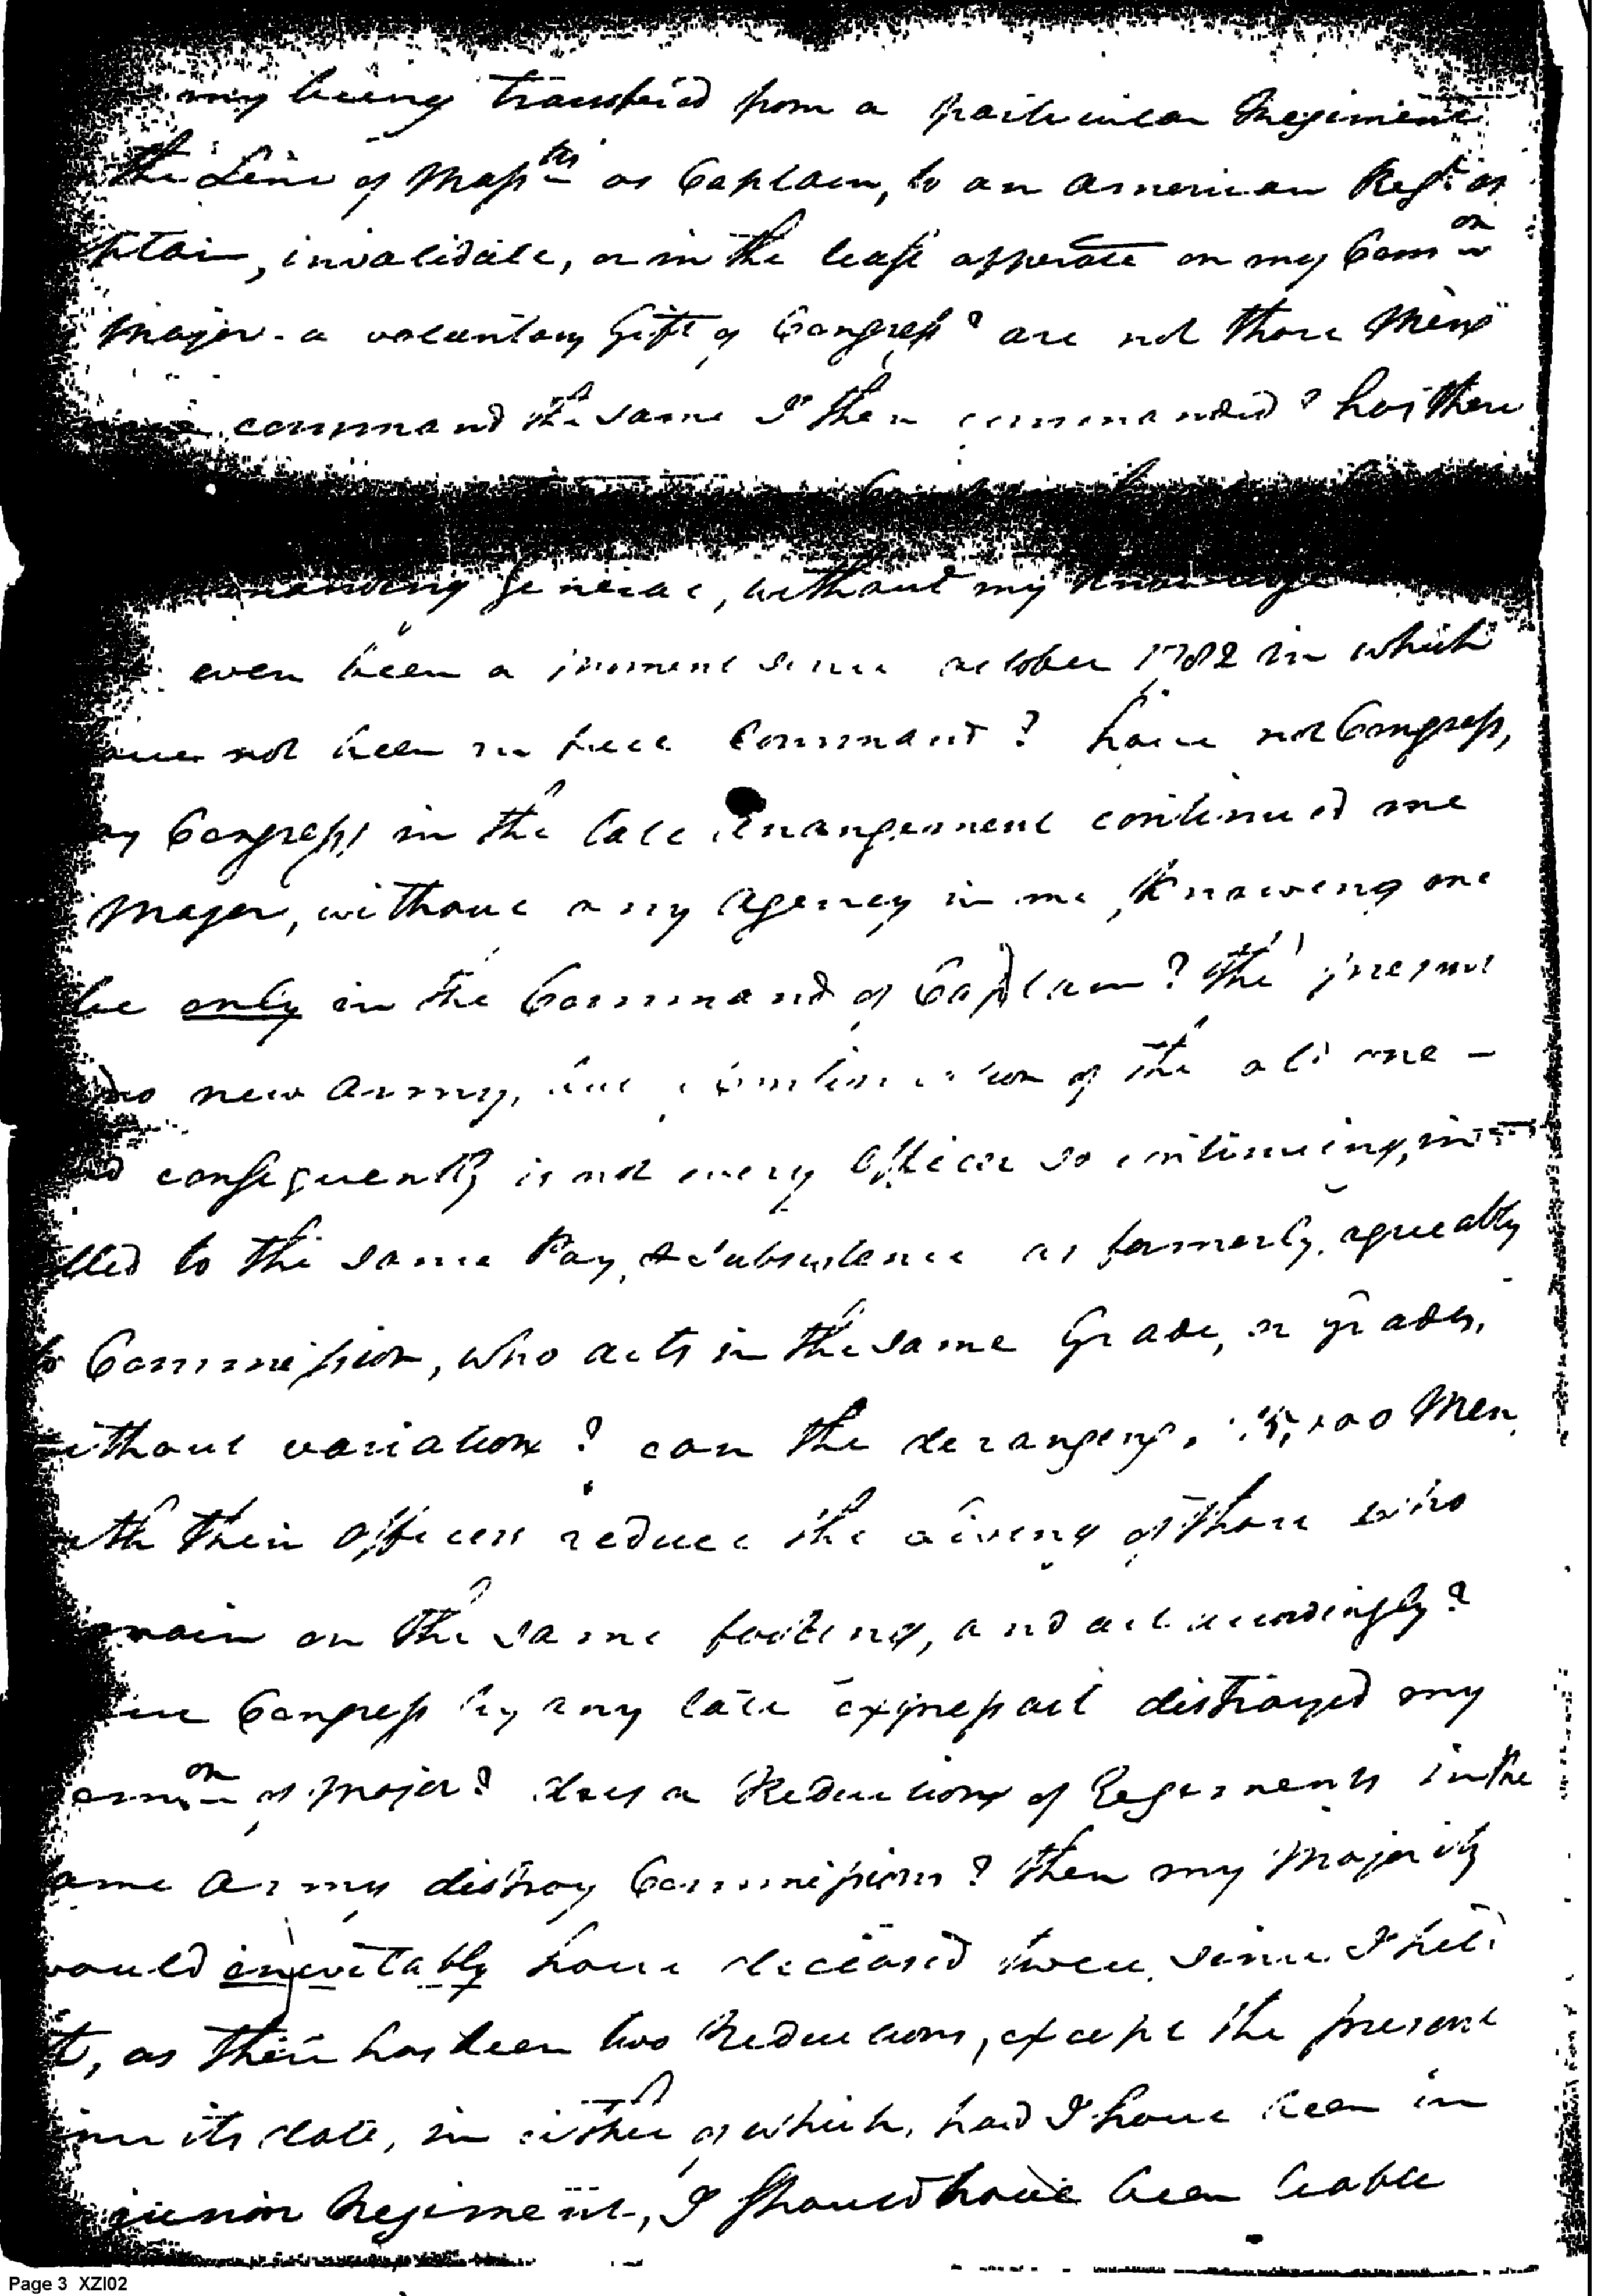 my being transferd from a particular Regiment
the Line of Massts as Captain, to an American Regt as
ptain, invalidate, or in the least opperate on my Comon
Major - a voluntary Gift of Congress? are not those Mens
command the same I then commanded? has there
manding General, without my knowledge
even been a moment since october 1782 in which
have not been in full Command? have not Congress,
ay Congress, in the late arrangement continued me
Major, without any agency in me, knowing me
be only in the Command of Captain? the present
no new army, but continuation of the old one -
nd consequently is not every Officer so continuing, in
tled to the same Pay, & Subsistence as formerly, agreeably
to Commission, who acts in the same Grade, or grades,
ithout variation? can the deranging 15,000 Men,
ith their Officers reduce the living of those who
main on the same footing, and act accordingly?
ave Congress by any late express act distroyed my
ommon of Major? does a Reduction of Regiments in the
ame Army distroy Commissions? then my Majority
would inevitably have deceased twice, since I held
t, as their has been two Reductions, except the present
since its date, in either of which, had I have been in
junior Regiment, I should have been liable
Page 3 XZI02